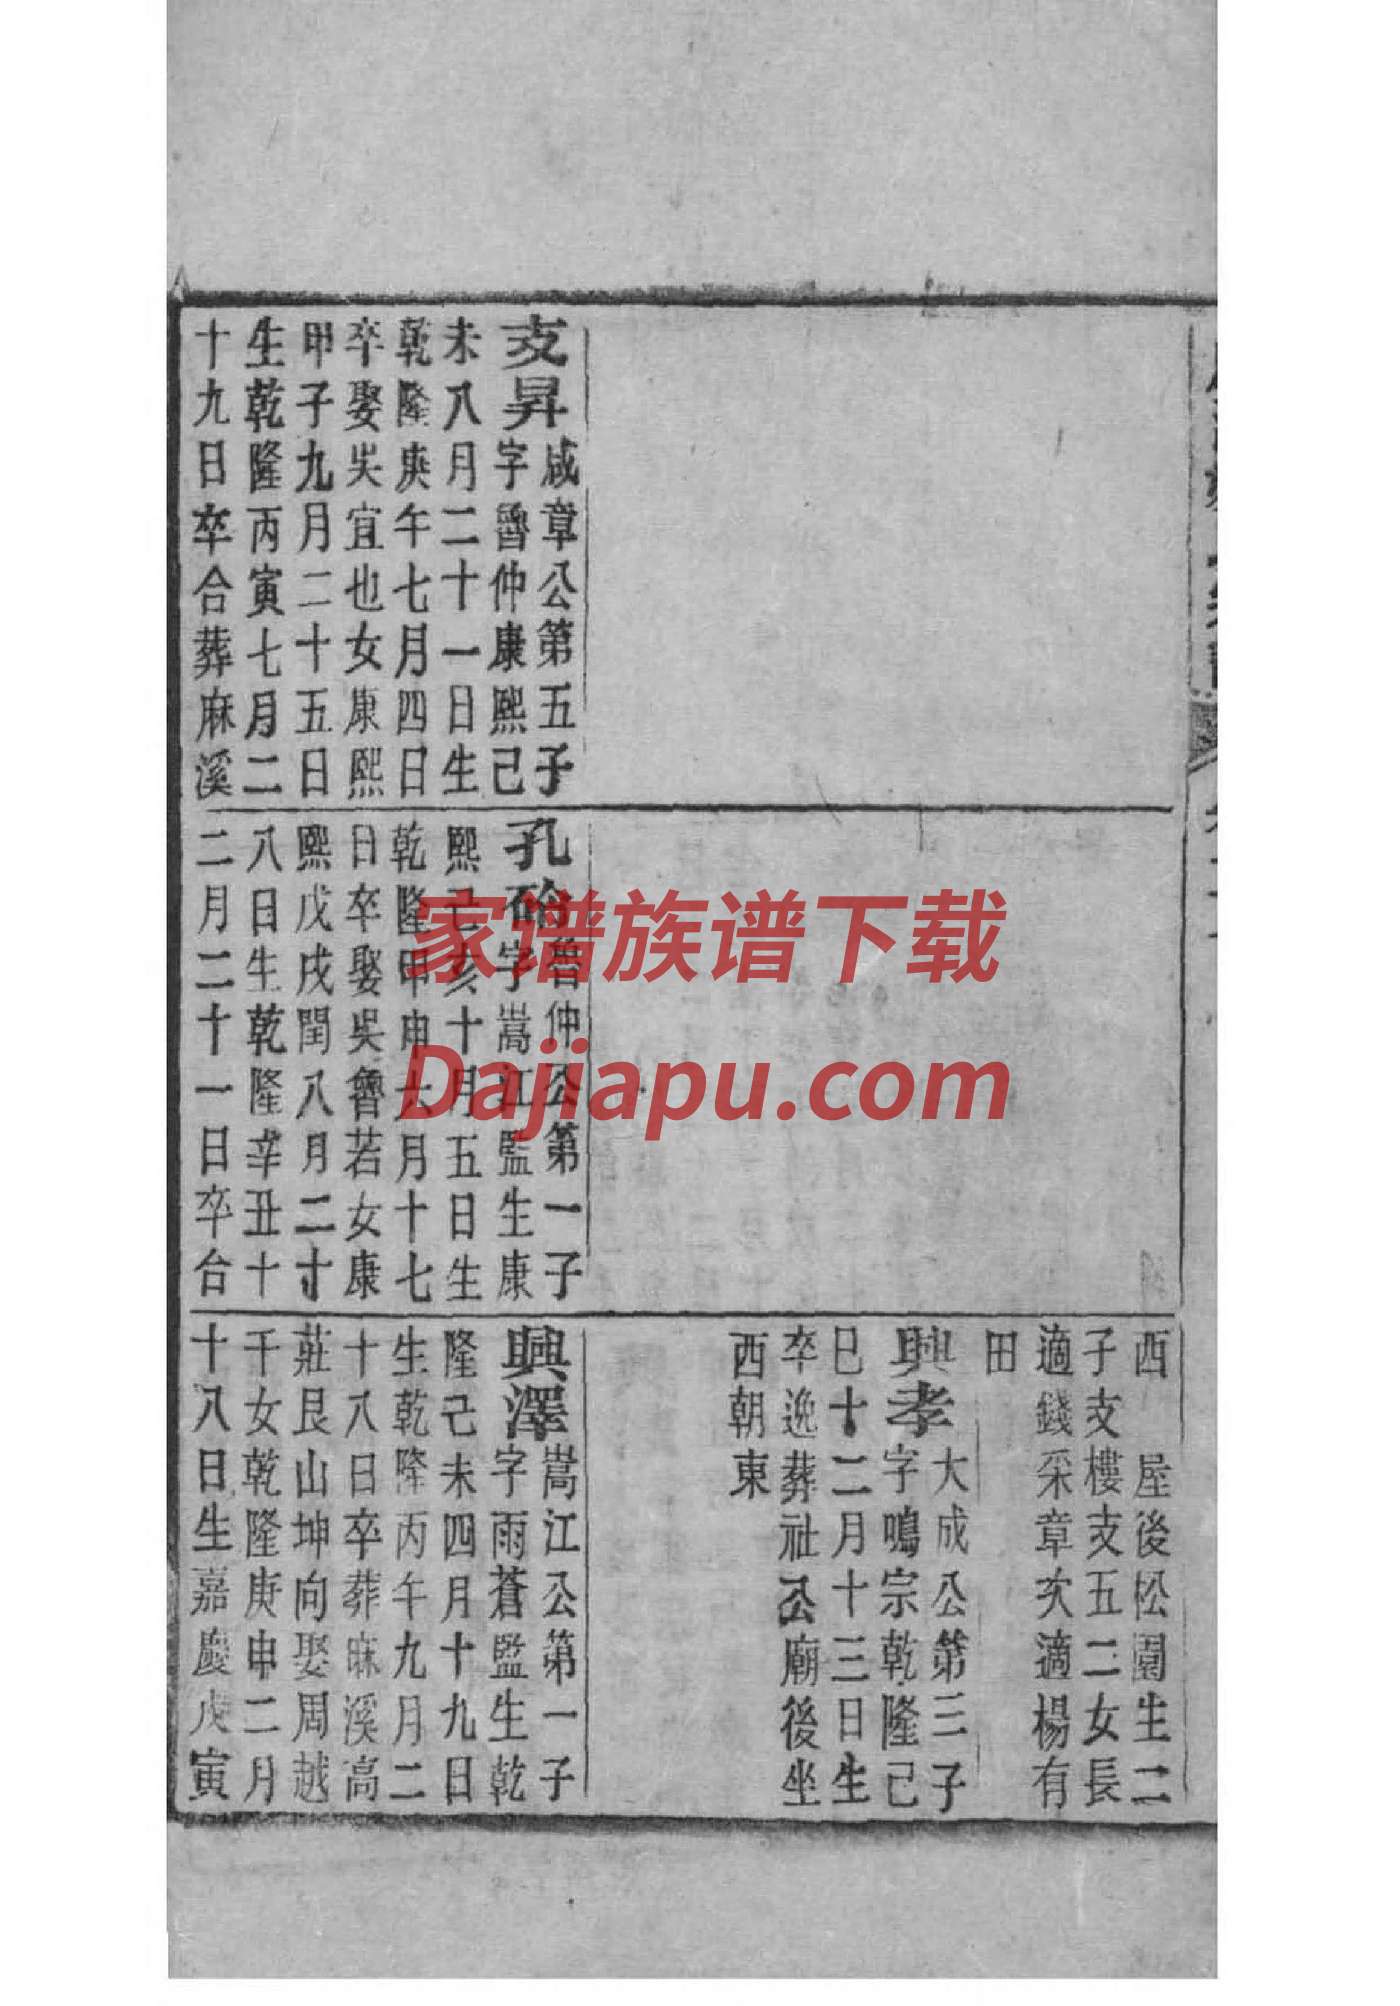 支昇
咸章公第五子
字魯仲康熙己
未八月二十一日生
乾隆庚午七月四日
卒娶吳宜也女康熙
甲子九月二十五日
生乾隆丙寅七月二
十九日卒合葬麻溪
孔碖
魯仲公第一子
字嵩江監生康
熙己亥十月五日生
乾隆甲申六月十七
日卒娶吳魯若女康
熙戊戌閏八月二十
八日生乾隆辛丑十
二月二十一日卒合
西 屋後松園生二
子支樓支五二女長
適錢采章次適楊有
田
興孝
大成公第三子
字鳴宗乾隆己
巳十二月十三日生
卒逸葬社公廟後坐
西朝東
興澤
嵩江公第一子
字雨蒼監生乾
隆己未四月十九日
生乾隆丙午九月二
十八日卒葬麻溪高
莊艮山坤向娶周越
千女乾隆庚申二月
十八日生嘉慶戊寅
家谱族谱下载
Dajiapu.com